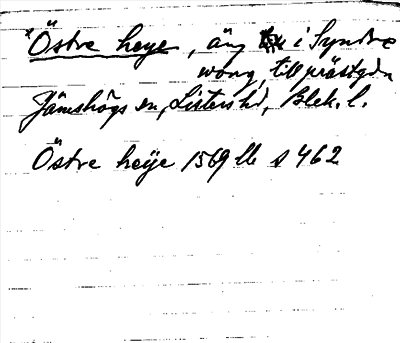 *Östre heye, äng i Syndre
wong, till prästgdn
Jämshögs sn, Listers hd, Blek. l.
Östre heije 1569 lb s 462